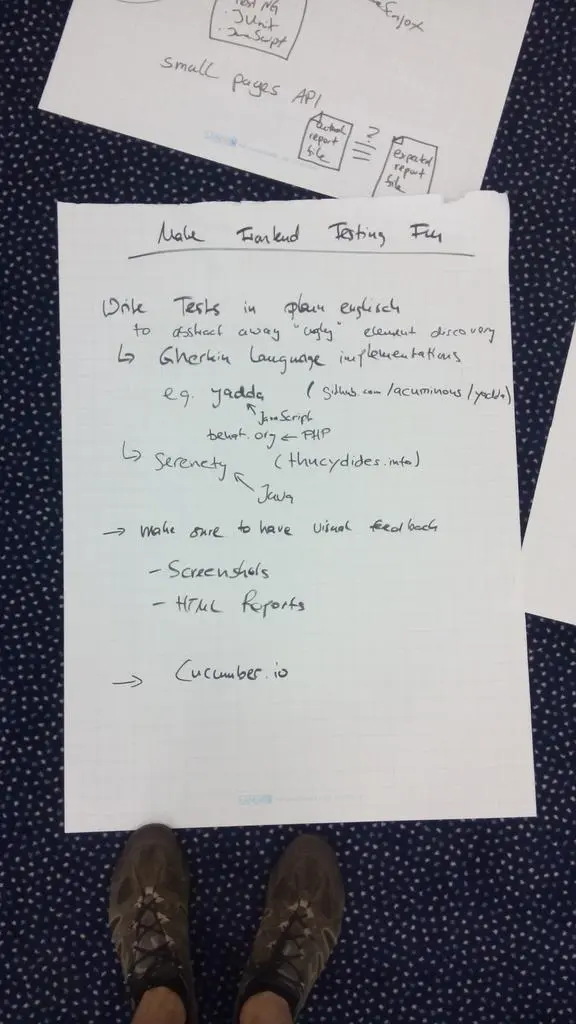 Test NG
· JUnit
· JavaScript
small pages API
actual
report
file
?
expected
report
file
Make Frontend Testing Fun
Write Tests in plain englisch
to abstract away "ugly" element discovery
↳ Gherkin Language implementations
e.g. yadda (github.com/acuminous/yadda)
JavaScript
behat.org ← PHP
↳ Serenety (thucydides.info)
Java
→ make sure to have visual feedback
- Screenshots
- HTML Reports
→ Cucumber.io